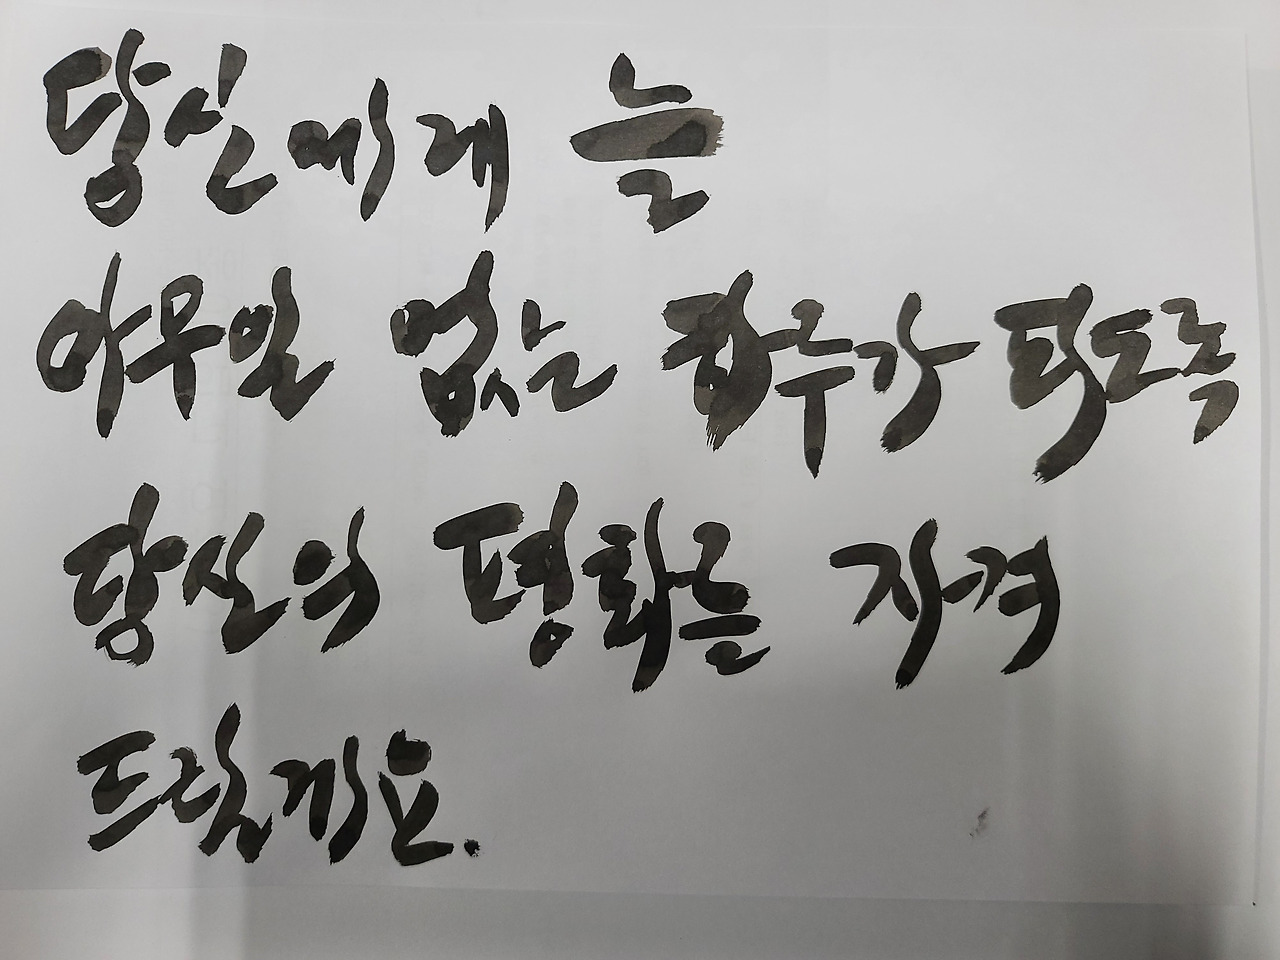 당신에게 늘
아무일 없는 하루가 되도록
당신의 평화를 자격
드릴게요.